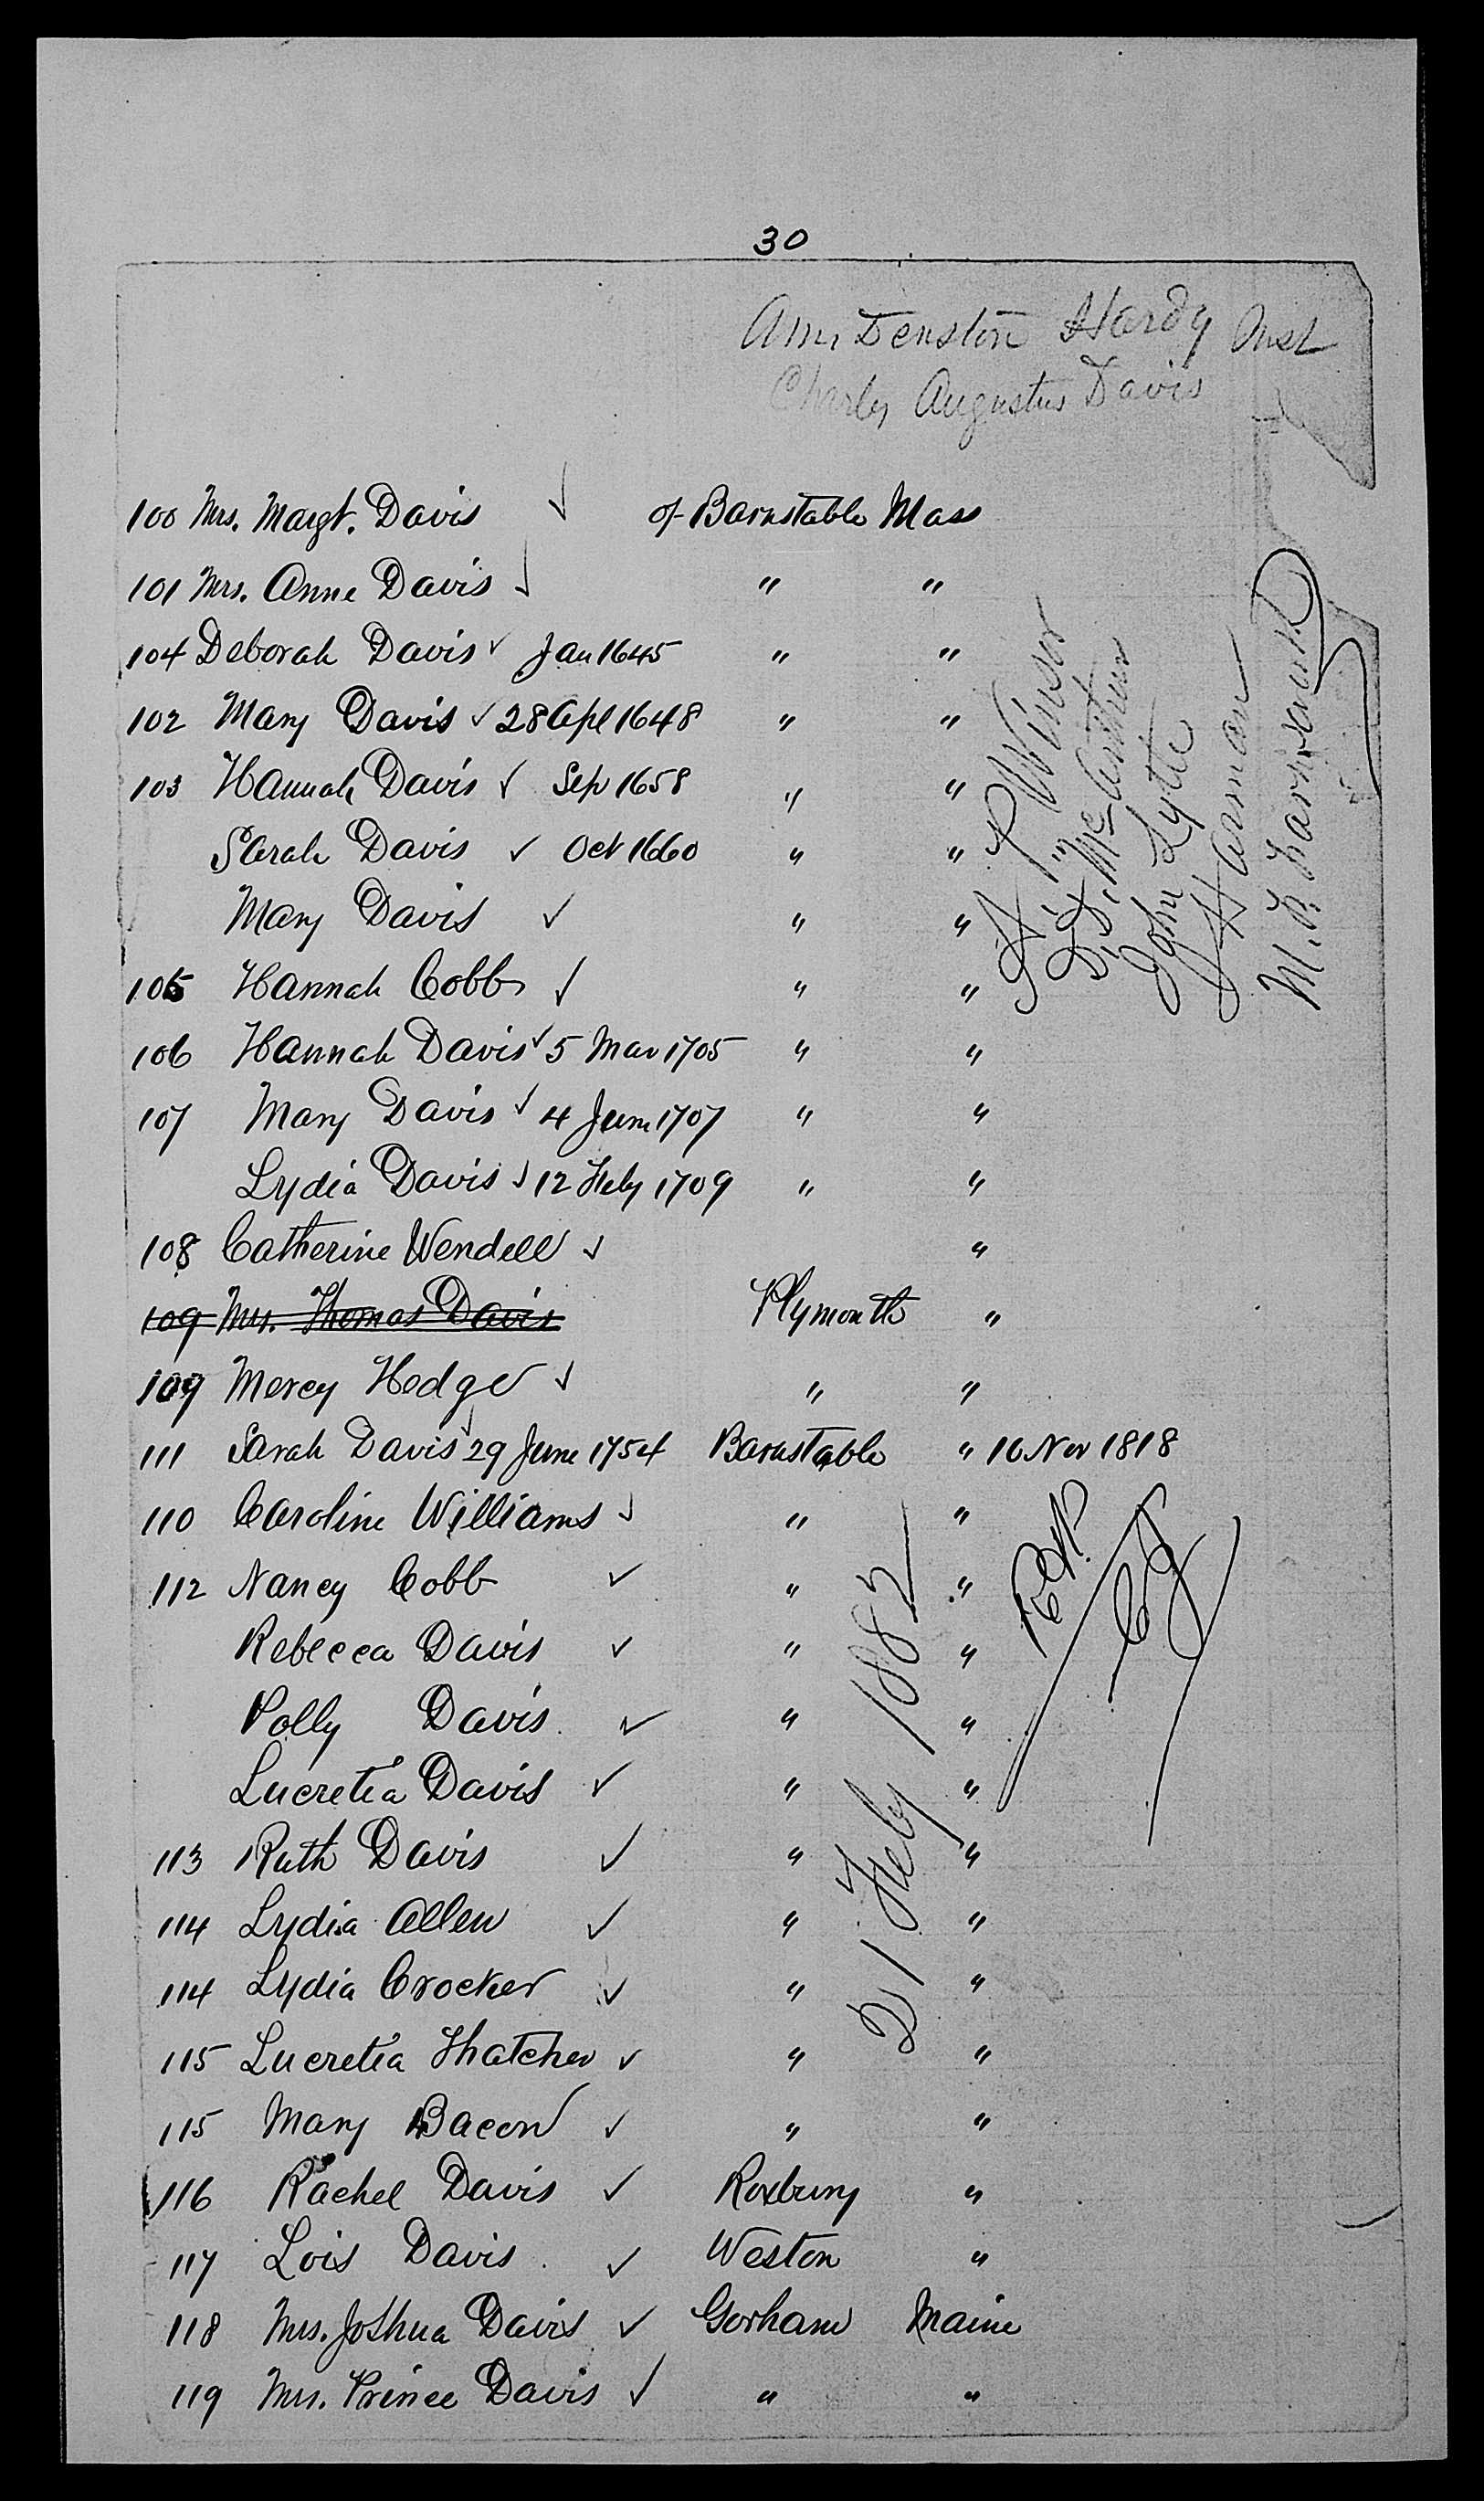 30
Ann Denston Hardy
Charles Augustus Davis
100 Mrs. Margt. Davis ✓ of Barnstable Mass
101 Mrs. Anne Davis ✓ " "
104 Deborah Davis ✓ Jan 1645 " "
102 Mary Davis ✓ 28 Apl 1648 " "
103 Hannah Davis ✓ Sep 1658 " "
Sarah Davis ✓ Oct 1660 " "
Mary Davis ✓ " "
105 Hannah Cobb ✓ " "
106 Hannah Davis ✓ 5 Mar 1705 " "
107 Mary Davis ✓ 4 June 1707 " "
Lydia Davis ✓ 12 Feby 1709 " "
108 Catherine Wendell ✓ "
109 Mrs. Thomas Davis Plymouth "
109 Mercy Hedge ✓ " "
111 Sarah Davis ✓ 29 June 1754 Barnstable " 10 Nov 1818
110 Caroline Williams ✓ " "
112 Nancy Cobb ✓ " "
Rebecca Davis ✓ " "
Polly Davis ✓ " "
Lucretia Davis ✓ " "
113 Ruth Davis ✓ " "
114 Lydia Allen ✓ " "
114 Lydia Crocker ✓ " "
115 Lucretia Thatcher ✓ " "
115 Mary Bacon ✓ " "
116 Rachel Davis ✓ Roxbury "
117 Lois Davis ✓ Weston "
118 Mrs. Joshua Davis ✓ Gorham Maine
119 Mrs. Prince Davis ✓ " "
Winsor
McArthur
John Lytle
Harman
21 Feby 1882